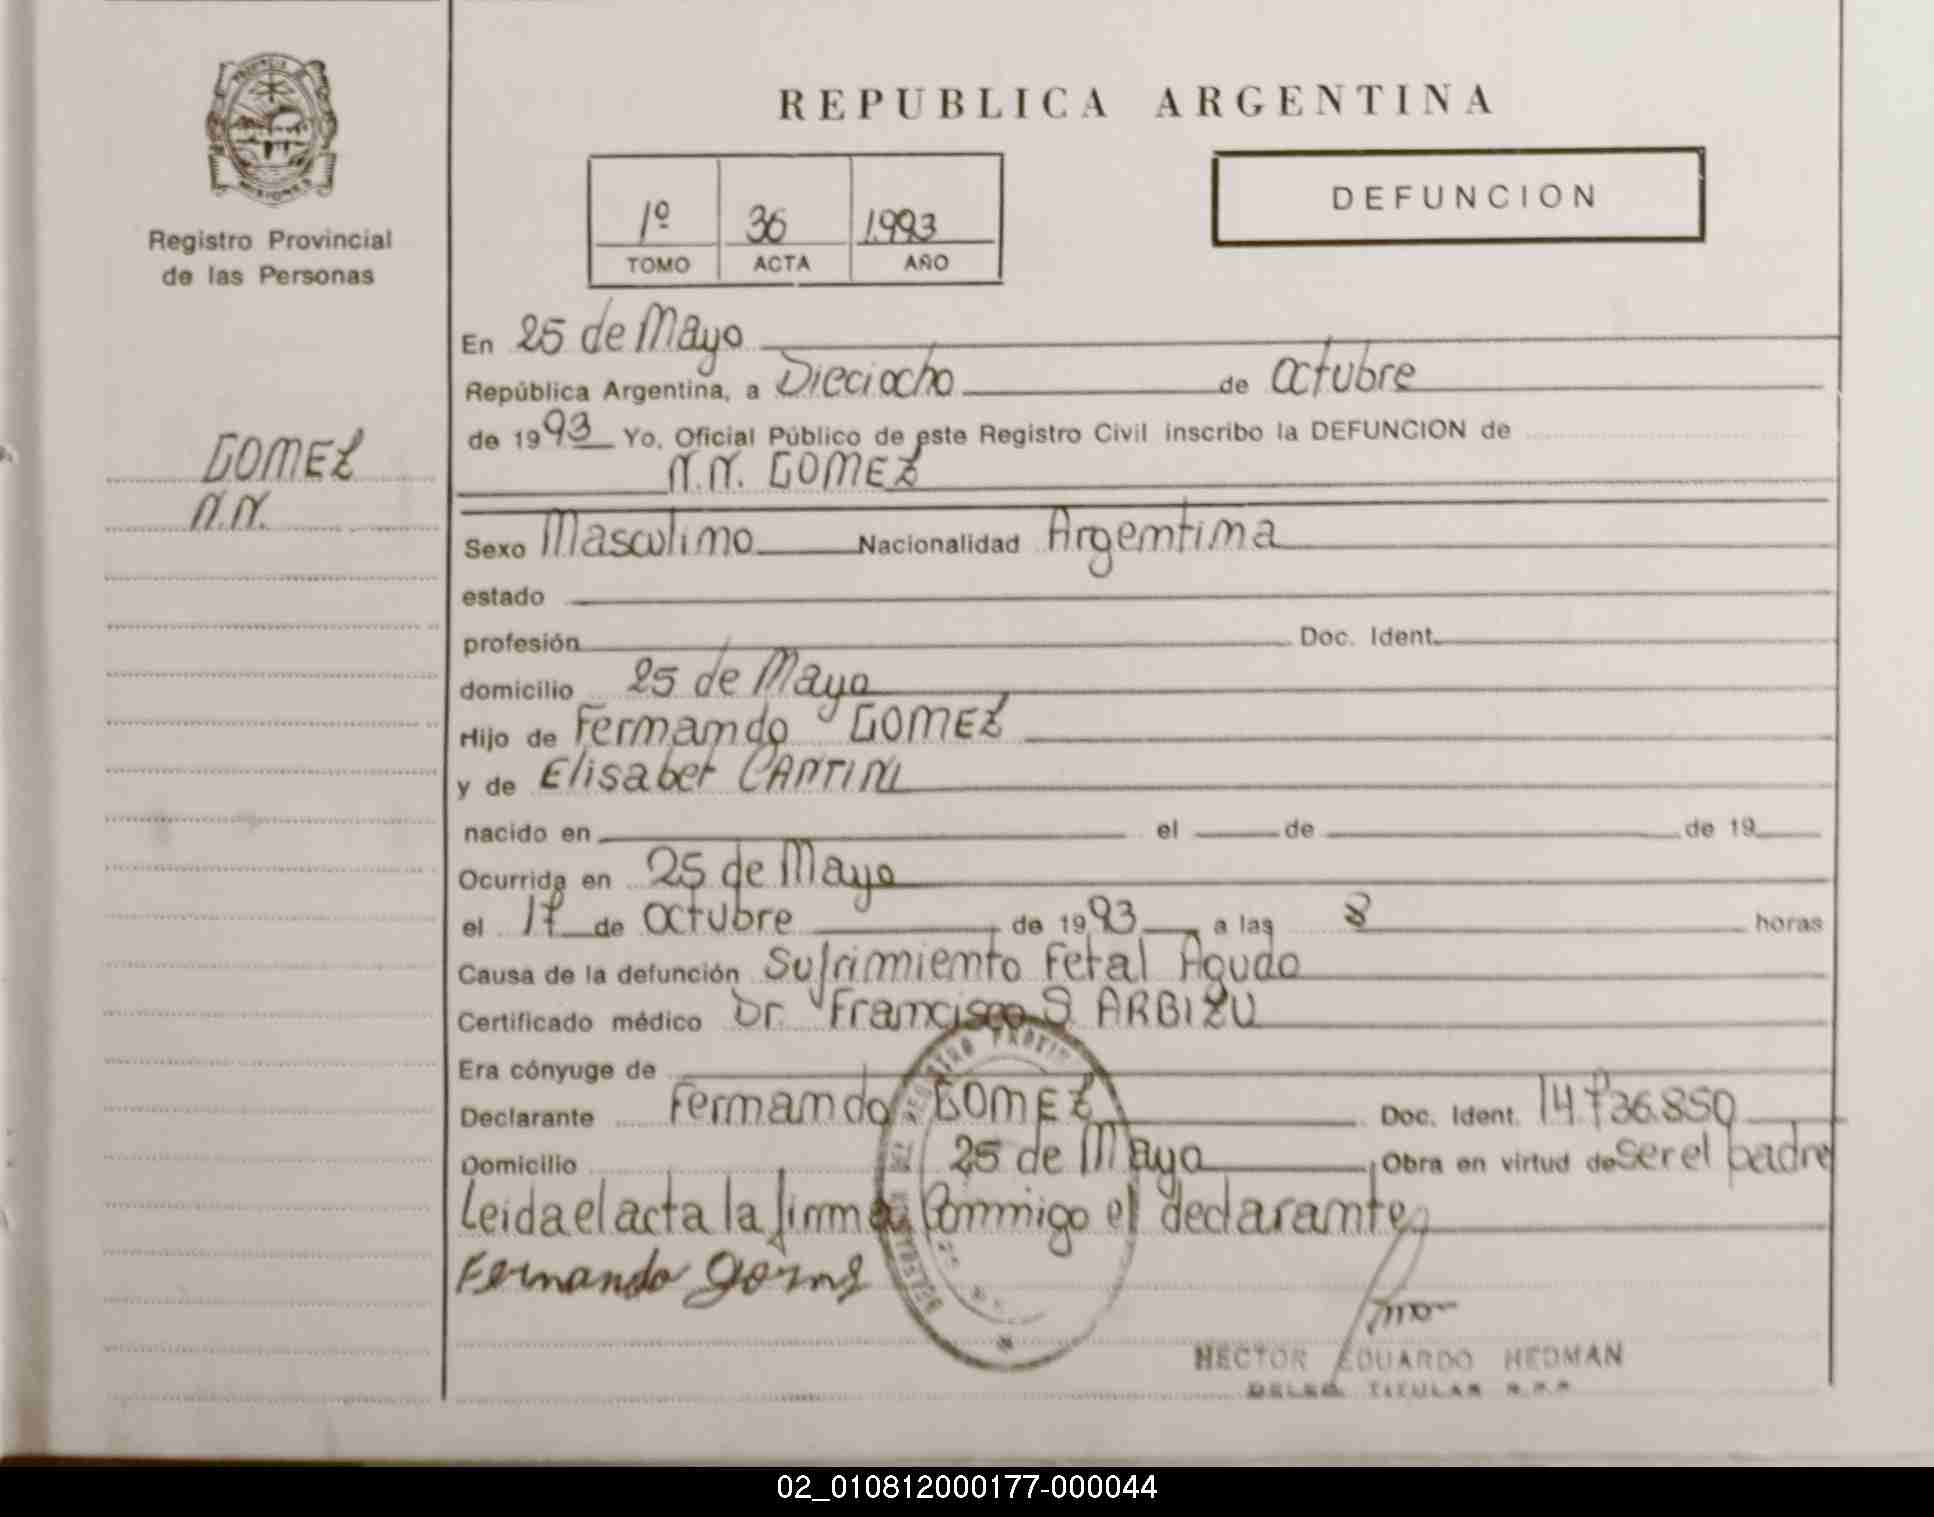 REPUBLICA ARGENTINA
DEFUNCION
1º 36 1.993
TOMO ACTA AÑO
Registro Provincial
de las Personas
GOMEZ
N.N.
En 25 de Mayo
República Argentina, a Dieciocho de octubre
de 1993 Yo, Oficial Público de este Registro Civil inscribo la DEFUNCION de
N.N. GOMEZ
Sexo Masculino Nacionalidad Argentina
estado
profesión Doc. Ident.
domicilio 25 de Mayo
Hijo de Fernando GOMEZ
y de Elisabet CANTINI
nacido en el de de 19
Ocurrida en 25 de Mayo
el 17 de octubre de 1993 a las 8 horas
Causa de la defunción Sufrimiento Fetal Agudo
Certificado médico Dr Francisco S ARBIZU
Era cónyuge de
Declarante Fernando GOMEZ Doc. Ident. 14.736.850
Domicilio 25 de Mayo Obra en virtud de ser el padre
Leida el acta la firma Conmigo el declarante
Fernando Gomez
HECTOR EDUARDO HEDMAN
TITULAR
02_010812000177-000044